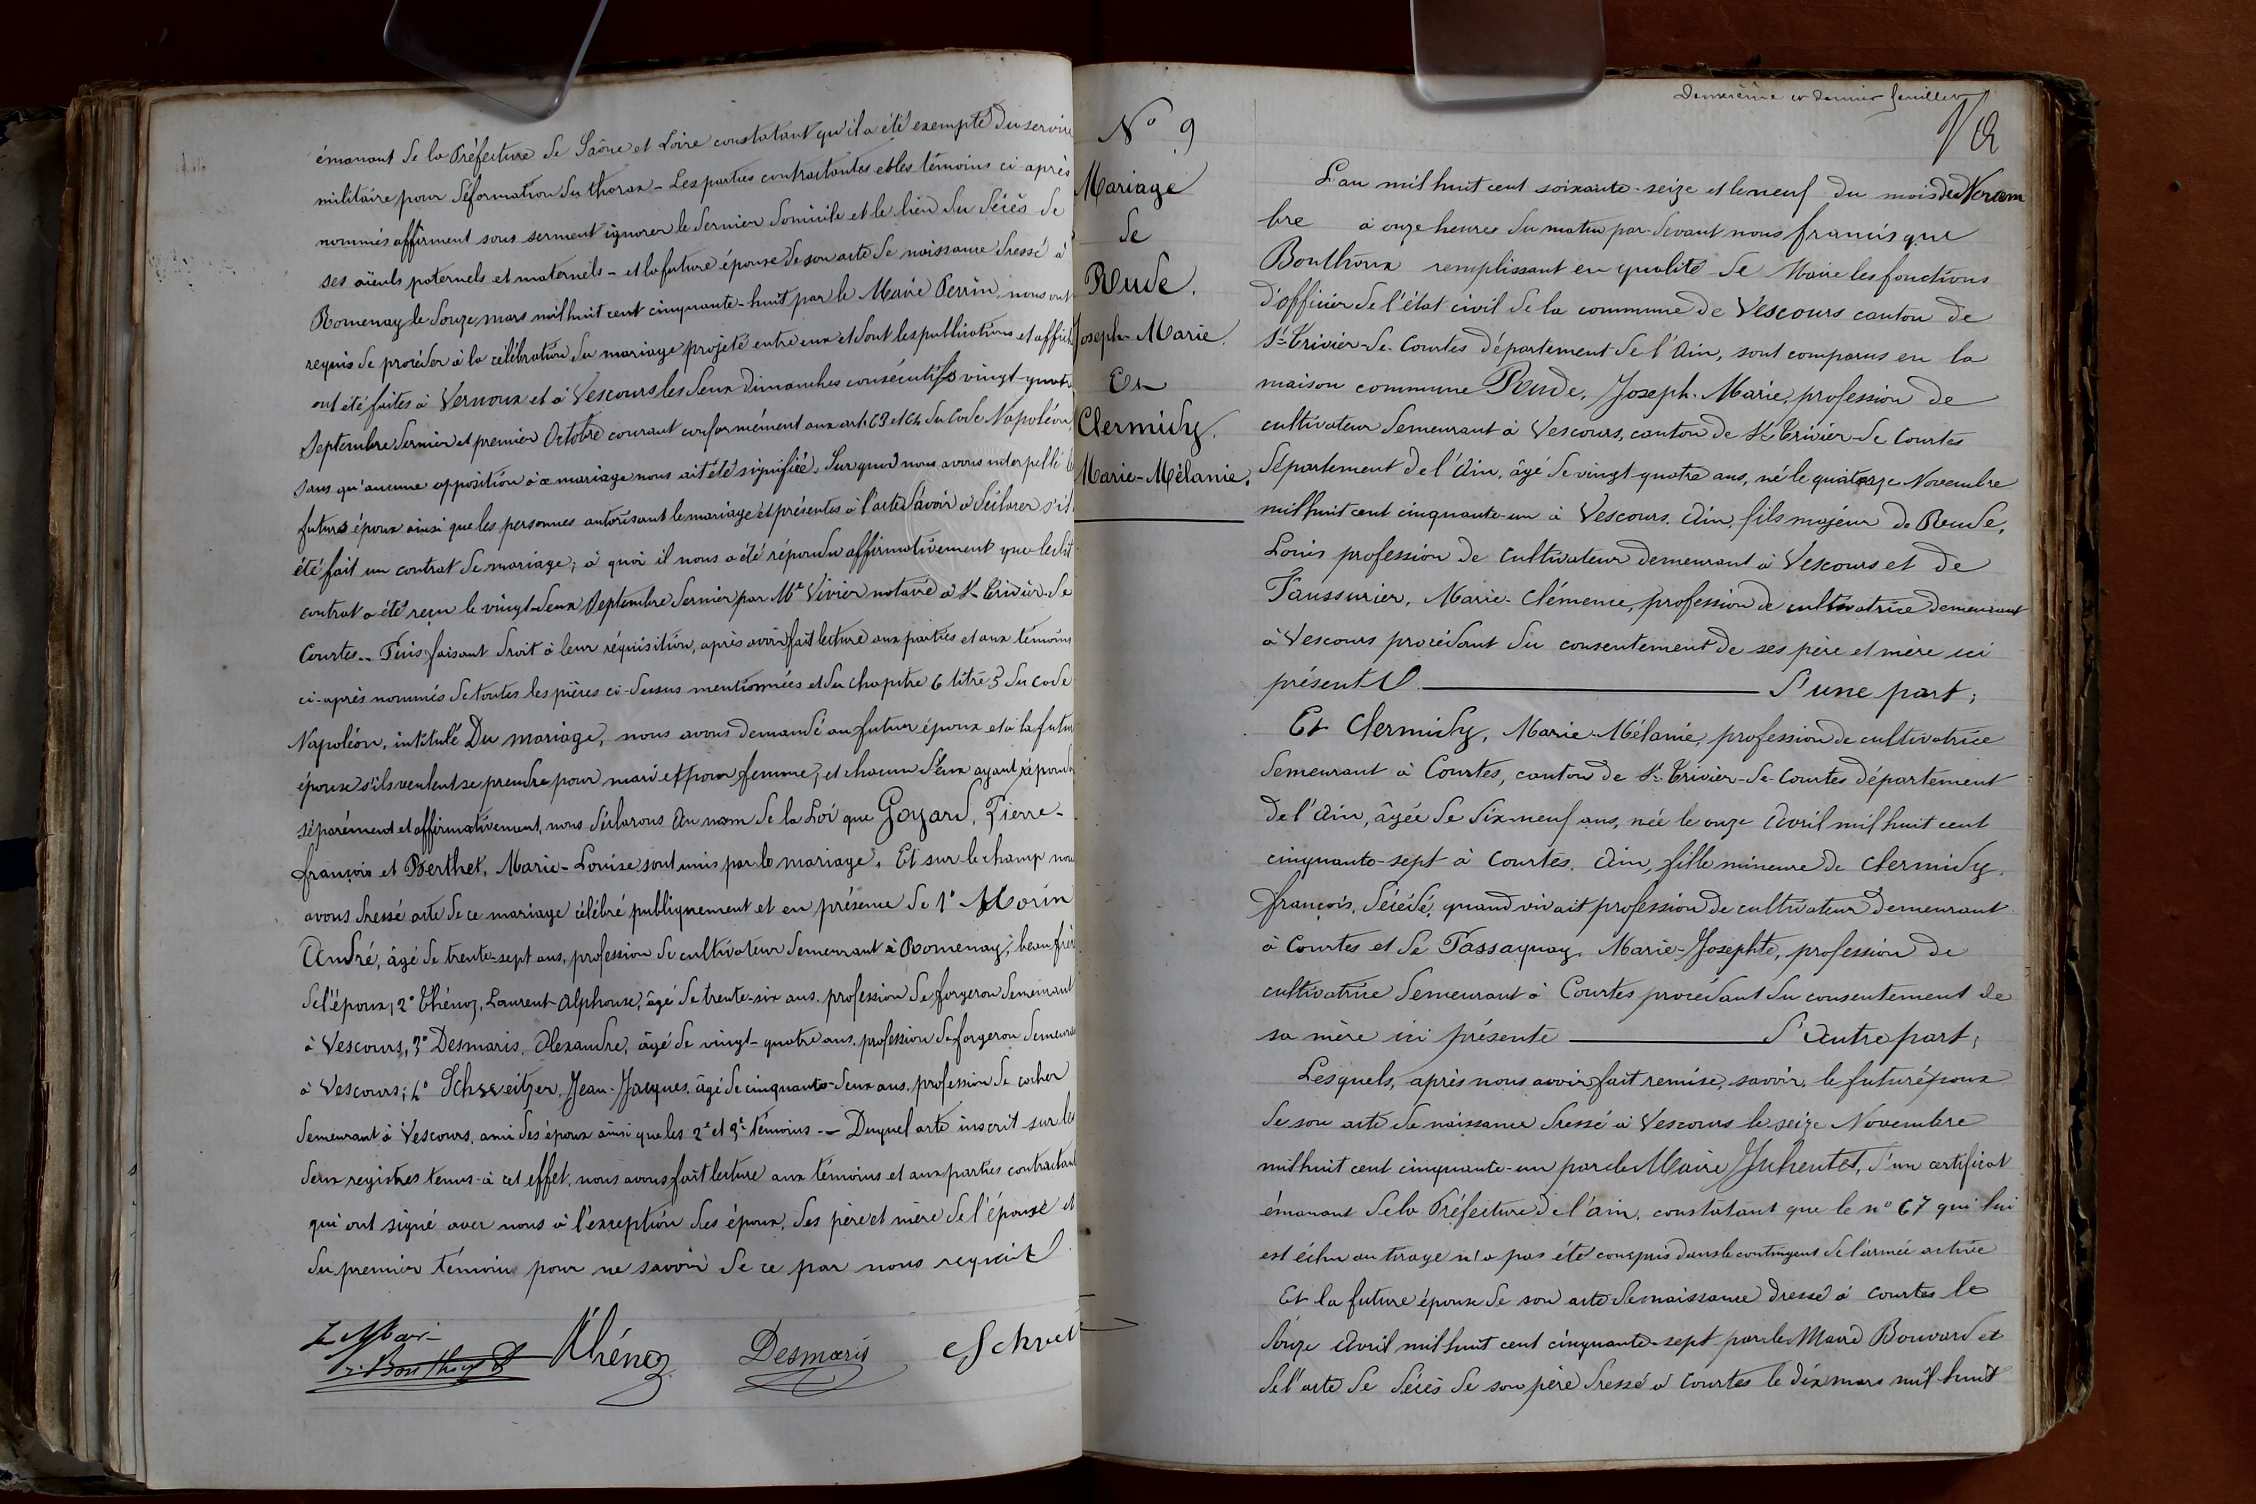 émanant de la Préfecture de Saône et Loire constatant qu'il a été exempté du service
militaire pour déformation du thorax - Les parties contractantes et les témoins ci-après
nommés affirment sous serment ignorer le dernier domicile et le lieu du décès de
ses aïeuls paternels et maternels - et la future épouse de son acte de naissance dressé à
Romenay le douze mars mil huit cent cinquante-huit par le Maire Perrin, nous ont
requis de procéder à la célébration du mariage projeté entre eux et dont les publications et affich
ont été faites à Vernoux et à Vescours les deux dimanches consécutifs vingt-quatre
Septembre dernier et premier Octobre courant conformément aux art. 63 et 64 du Code Napoléon,
sans qu'aucune opposition à ce mariage nous ait été signifiée. Sur quoi nous avons interpellé
futurs époux ainsi que les personnes autorisant le mariage et présentes à l'acte d'avoir à déclarer s'il
été fait un contrat de mariage; à quoi il nous a été répondu affirmativement que ledit
contrat a été reçu le vingt-deux Septembre dernier par Me Vivier notaire à St Trivier-de
Courtes.- Puis faisant droit à leur réquisition, après avoir fait lecture aux parties et aux témoins
ci-après nommés de toutes les pièces ci-dessus mentionnées et du chapitre 6 titre 5 du code
Napoléon, intitulé Du mariage, nous avons demandé au futur époux et à la futur
épouse s'ils veulent se prendre pour mari et pour femme, et chacun d'eux ayant répondu
séparément et affirmativement, nous déclarons au nom de la Loi que Goyard, Pierre-
françois et Berthet, Marie-Louise sont unis par le mariage. Et sur-le-champ nous
avons dressé acte de ce mariage célébré publiquement et en présence de 1° Morin
André, âgé de trente-sept ans, profession de cultivateur demeurant à Romenay, beau frère
de l'époux, 2° Thénoz, Laurent-Alphonse, âgé de trente-six ans, profession de forgeron demeurant
à Vescours, 3° Desmaris, Alexandre, âgé de vingt-quatre ans, profession de forgeron demeurant
à Vescours; 4° Schweitzer, Jean-Jacques, âgé de cinquante-deux ans, profession de cocher
demeurant à Vescours, ami des époux ainsi que les 2e et 3e témoins -- Duquel acte inscrit sur les
deux registres tenus à cet effet, nous avons fait lecture aux témoins et aux parties contractant
qui ont signé avec nous à l'exception des époux, des père et mère de l'épouse et
du premier témoin pour ne savoir de ce par nous requis
Le Maire
Thénoz Desmaris
N° 9
Mariage
de
Reude,
Joseph-Marie.
Et
Clermidy,
Marie-Mélanie.
Deuxième et dernier feuillet
L'an mil huit cent soixante-seize et le neuf du mois de Novem
bre à onze heures du matin par-devant nous francisque
Bouthoux remplissant en qualité de Maire les fonctions
d'officier de l'état civil de la commune de Vescours canton de
St-Trivier-de-Courtes département de l'Ain, sont comparus en la
maison commune Reude, Joseph-Marie, profession de
cultivateur demeurant à Vescours, canton de St-Trivier-de Courtes
département de l'Ain, âgé de vingt-quatre ans, né le quatorze Novembre
mil huit cent cinquante-un à Vescours, Ain, fils majeur de Reude,
Louis profession de cultivateur demeurant à Vescours et de
Faussurier, Marie-Clémence, profession de cultivatrice demeurant
à Vescours procédant du consentement de ses père et mère ici
présents d'une part;
Et Clermidy, Marie-Mélanie, profession de cultivatrice
demeurant à Courtes, canton de St-Trivier-de-Courtes département
de l'Ain, âgée de dix-neuf ans, née le onze Avril mil huit cent
cinquante-sept à Courtes, Ain, fille mineure de Clermidy,
françois, décédé, quand vivait profession de cultivateur demeurant
à Courtes et de Passaquay, Marie-Josephte, profession de
cultivatrice demeurant à Courtes procédant du consentement de
sa mère ici présente d'autre part;
Lesquels, après nous avoir fait remise, savoir, le futur époux
de son acte de naissance dressé à Vescours le seize Novembre
mil huit cent cinquante-un par le Maire d'un certificat
émanant de la Préfecture de l'Ain, constatant que le n° 67 qui lui
est échu au tirage n'a pas été compris dans le contingent de l'armée active
Et la future épouse de son acte de naissance dressé à Courtes le
douze Avril mil huit cent cinquante-sept par le Maire Bouvard et
de l'acte de décès de son père dressé à Courtes le dix mars mil huit